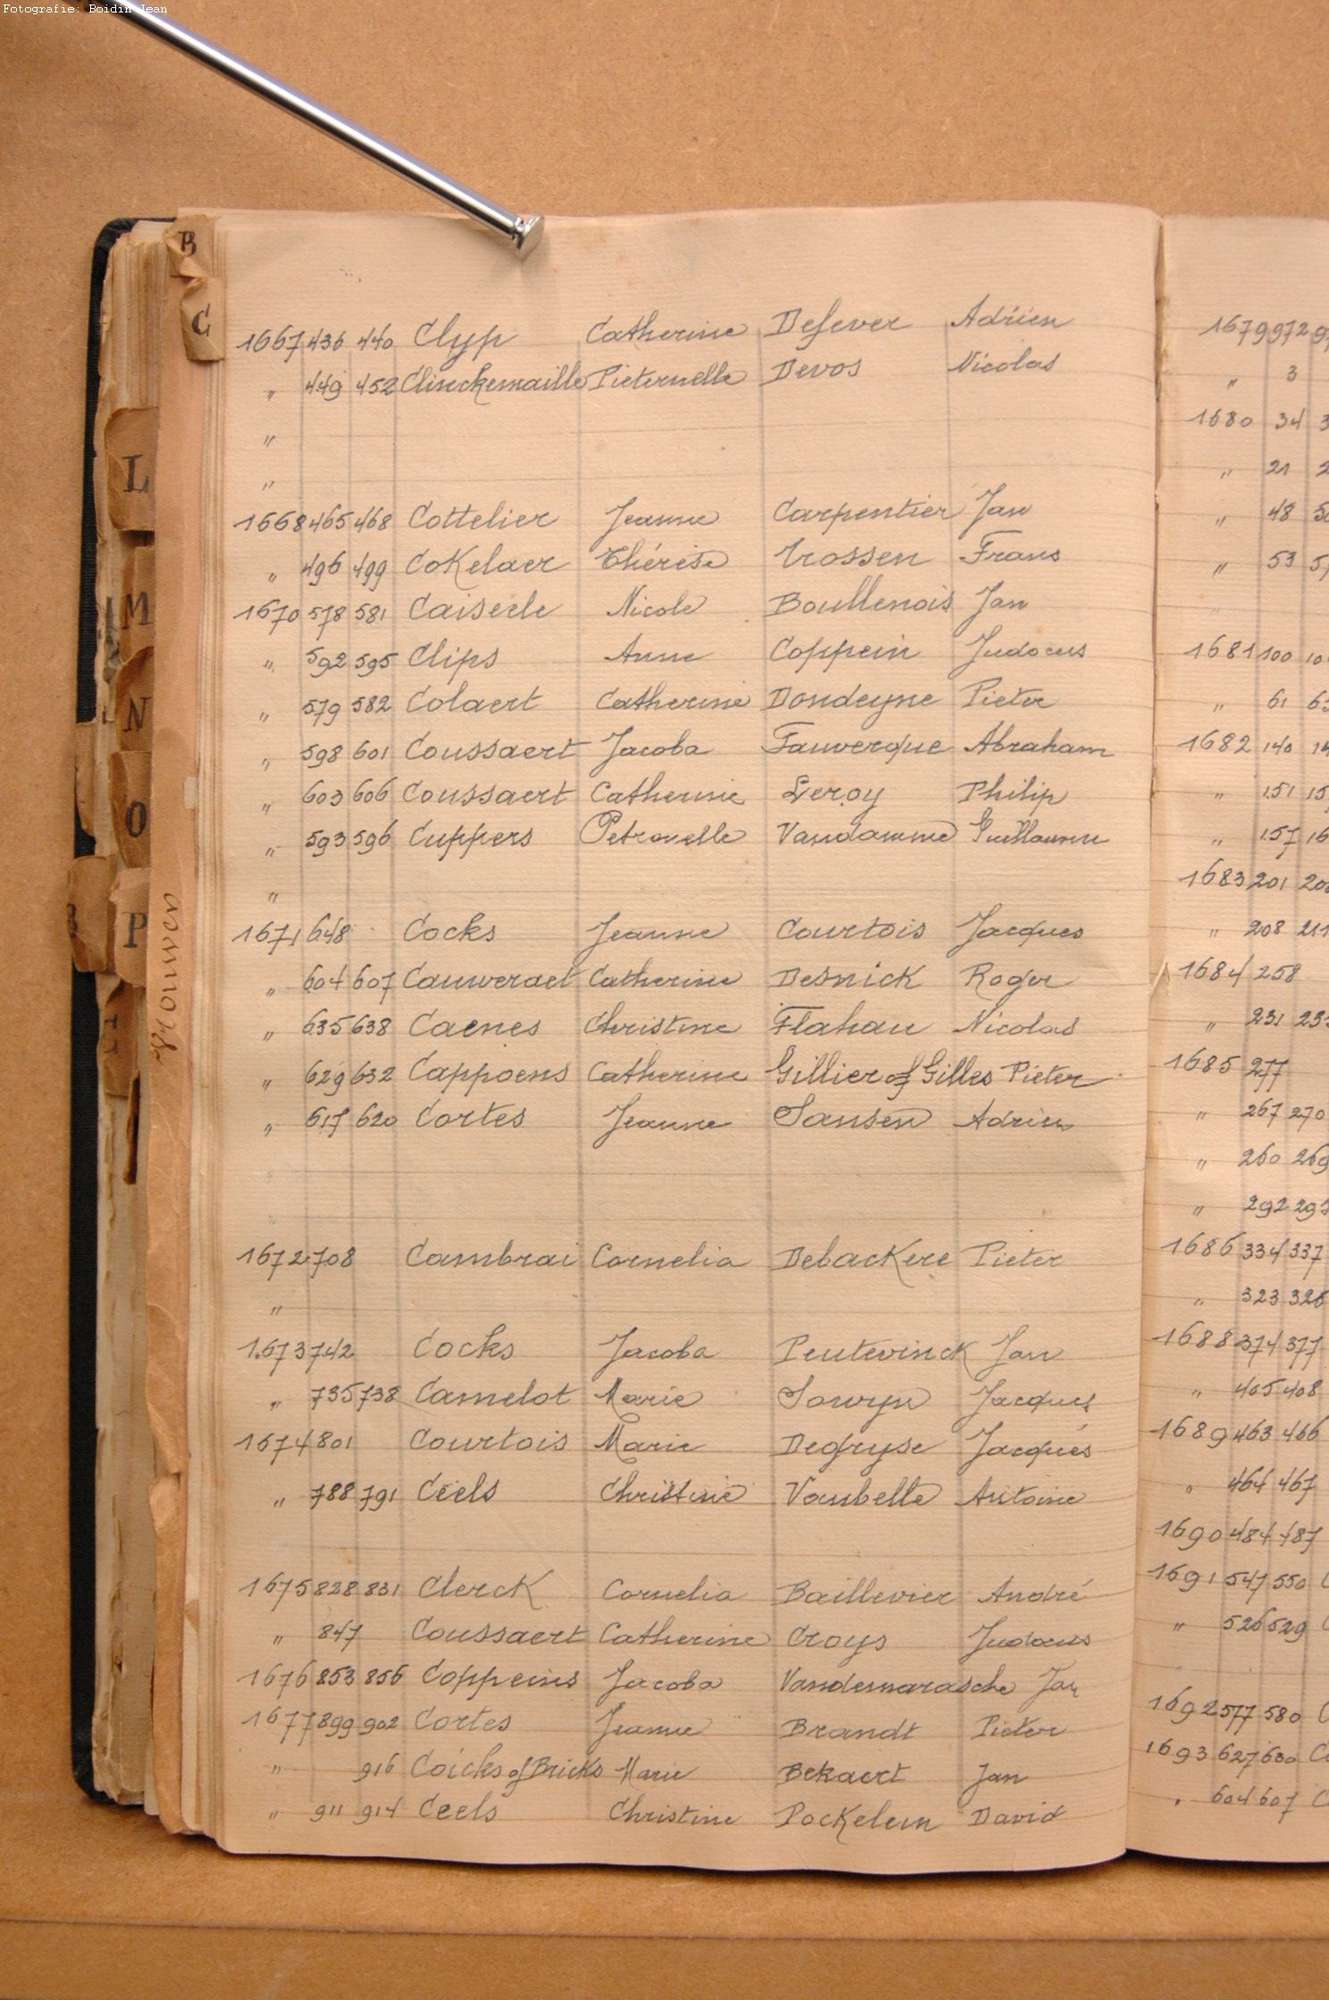 Fotografie: Boidin Jean
B
C
L
M
N
O
P
Vrouwen
1667 436 440 Clyp Catherine Defever Adrien
" 449 452 Clinckemaille Pieternelle Devos Nicolas
"
"
1668 465 468 Cottelier Jeanne Carpentier Jan
" 496 499 CoKelaer Thérèse Trossen Frans
1670 578 581 Caisele Nicole Boullenois Jan
" 592 595 Clips Anne Coppein Judocus
" 579 582 Colaert Catherine Dondeyne Pieter
" 598 601 Coussaert Jacoba Fauverque Abraham
" 603 606 Coussaert Catherine Leroy Philip
" 593 596 Cuppers Petronelle Vandamme Guillaume
"
1671 648 Cocks Jeanne Courtois Jacques
" 604 607 Cauweraet Catherine Desnick Roger
" 635 638 Caenes Christine Flahau Nicolas
" 629 632 Cappoens Catherine Gillier of Gilles Pieter
" 617 620 Cortes Jeanne Sansen Adrien
1672 708 Cambrai Cornelia DebacKere Pieter
"
1673 742 Cocks Jacoba Peutevinck Jan
" 735 738 Camelot Marie Sowyn Jacques
1674 801 Courtois Marie Degryse Jacques
" 788 791 Ceels Christine Vanbelle Antoine
1675 828 831 ClercK Cornelia Baillevier André
" 847 Coussaert Catherine Croys Judocus
1676 853 856 Coppeins Jacoba Vandemarasche Jan
1677 899 902 Cortes Jeanne Brandt Pieter
" 916 Coicks of Bricks Marie Bekaert Jan
" 911 914 Ceels Christine PocKelein David
1679 972
" 3
1680 34
" 21
" 48
" 53
1681 100
" 61
1682 140
" 151
" 157
1683 201
" 208 211
1684 258
" 231
1685 277
" 267 270
" 260 269
" 292
1686 334 337
" 323 326
1688 374 377
" 405 408
1689 463 466
" 464 467
1690 484 487
1691 547 550
" 526 529
1692 577 580
1693 627 630
" 604 607